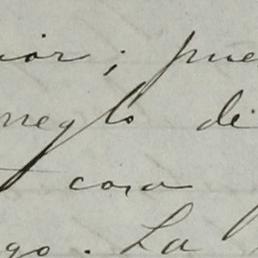 ior; pue
rreglo di
cosa
go. La